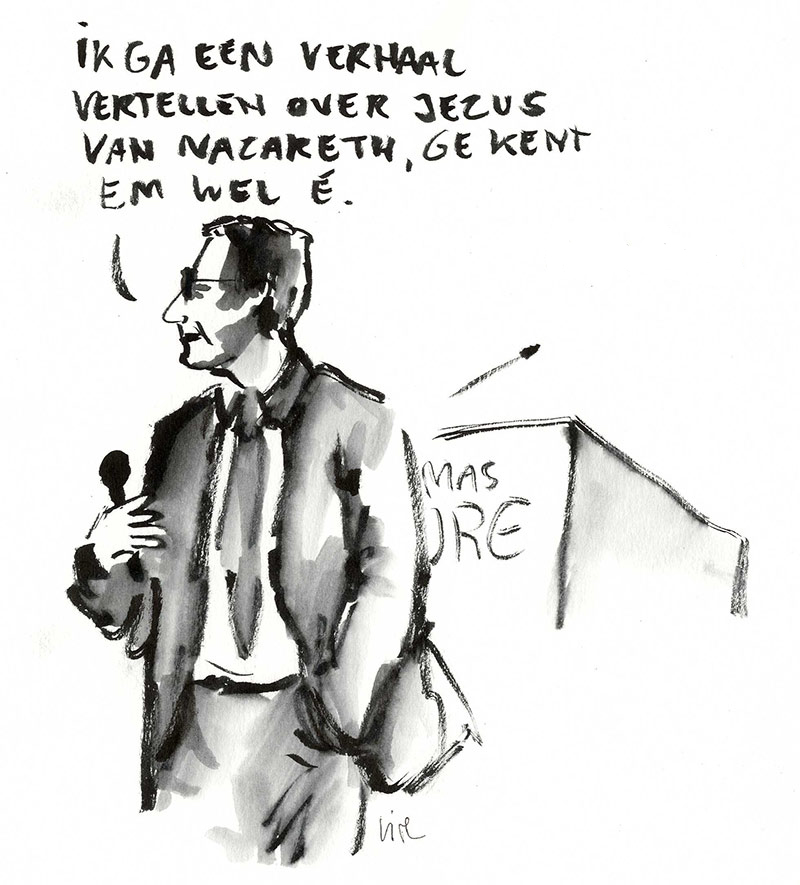 iK GA EEN VERHAAL
VERTELLEN OVER JEZUS
VAN NAZARETH, GE KENT
EM WEL É.
MAS
URE